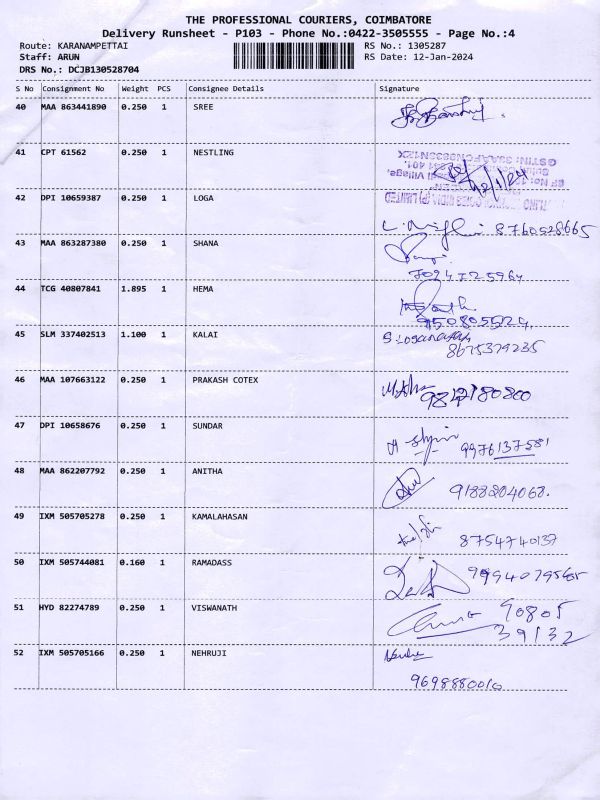 THE PROFESSIONAL COURIERS, COIMBATORE
Delivery Runsheet - P103 - Phone No.:0422-3505555 - Page No.:4
Route: KARANAMPETTAI RS No.: 1305287
Staff: ARUN RS Date: 12-Jan-2024
DRS No.: DCJB130528704
S No Consignment No Weight PCS Consignee Details Signature
40 MAA 863441890 0.250 1 SREE
41 CPT 61562 0.250 1 NESTLING
12/1/24
42 DPI 10659387 0.250 1 LOGA
8760528665
43 MAA 863287380 0.250 1 SHANA
7024725964
44 TCG 40807841 1.895 1 HEMA
45 SLM 337402513 1.100 1 KALAI
8675379235
46 MAA 107663122 0.250 1 PRAKASH COTEX
47 DPI 10658676 0.250 1 SUNDAR
9976137581
48 MAA 862207792 0.250 1 ANITHA
9188204068.
49 IXM 505705278 0.250 1 KAMALAHASAN
8754740137
50 IXM 505744081 0.160 1 RAMADASS
51 HYD 82274789 0.250 1 VISWANATH
90805
39132
52 IXM 505705166 0.250 1 NEHRUJI
9698880010